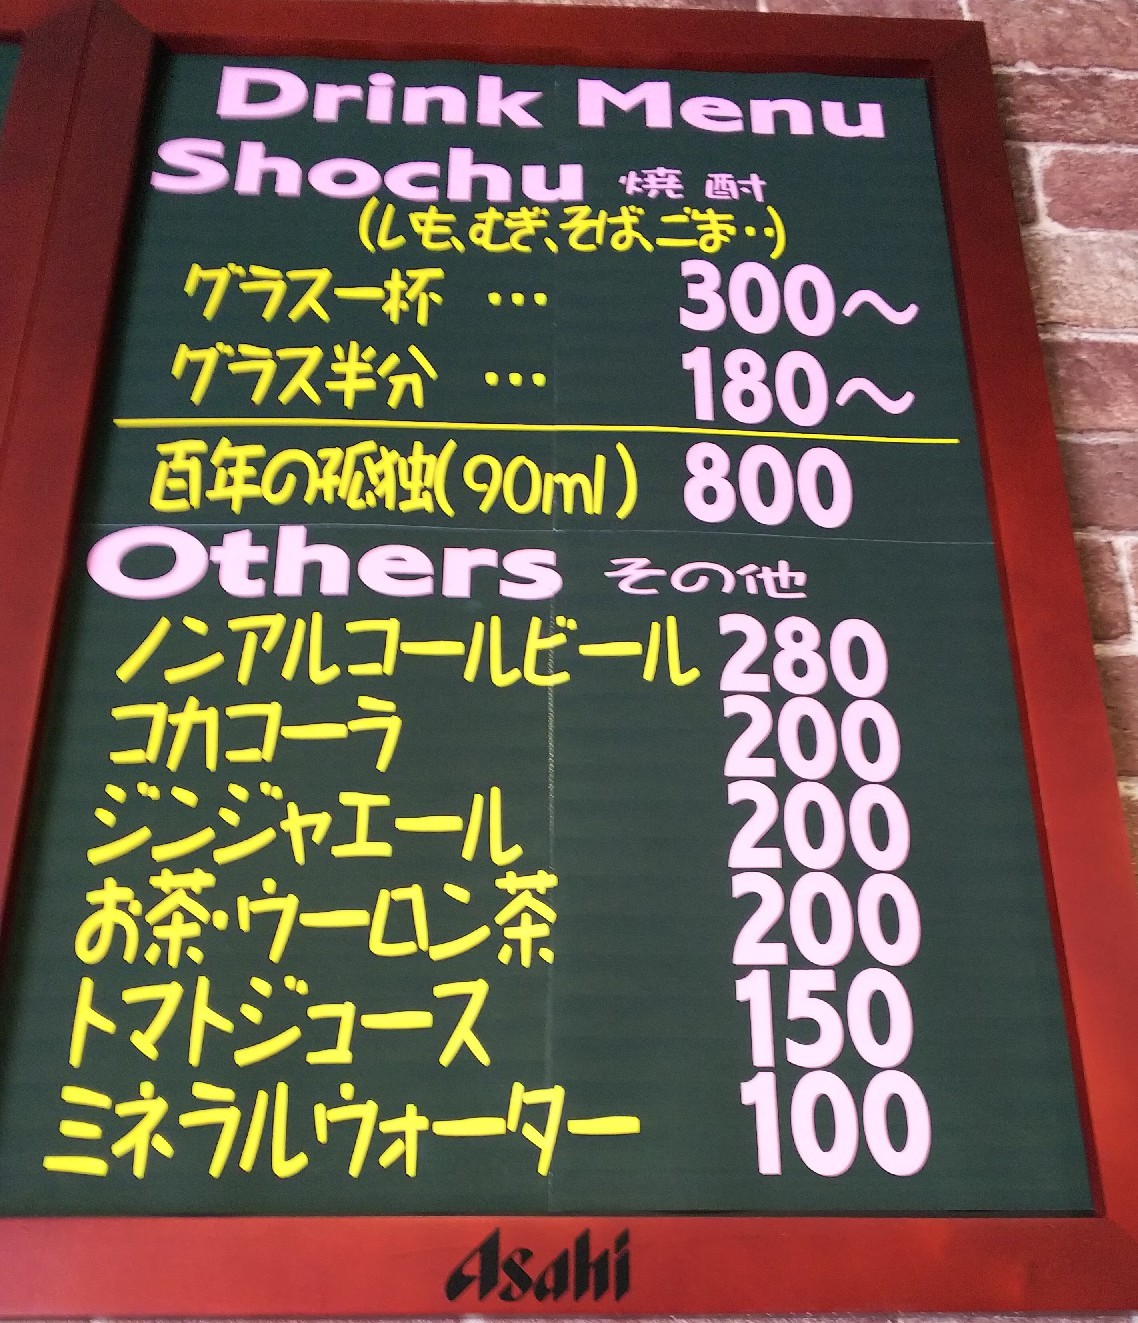 Drink Menu
Shochu 焼酎
(いも、むぎ、そば、ごま‥)
グラス一杯 … 300～
グラス半分 … 180～
百年の孤独(90ml) 800
Others その他
ノンアルコールビール 280
コカコーラ 200
ジンジャエール 200
お茶・ウーロン茶 200
トマトジュース 150
ミネラルウォーター 100
Asahi